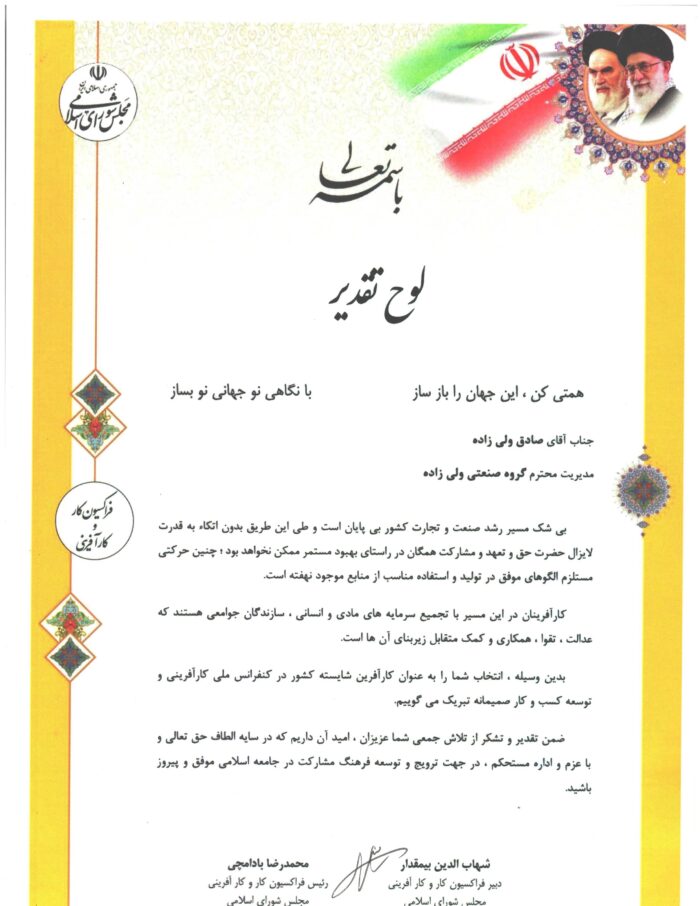 جمهوری اسلامی ایران
مجلس شورای اسلامی
باسمه تعالی
لوح تقدیر
همتی کن ، این جهان را باز ساز با نگاهی نو جهانی نو بساز
جناب آقای صادق ولی زاده
مدیریت محترم گروه صنعتی ولی زاده
فراکسیون کار
و
کارآفرینی
بی شک مسیر رشد صنعت و تجارت کشور بی پایان است و طی این طریق بدون اتکاء به قدرت
لایزال حضرت حق و تعهد و مشارکت همگان در راستای بهبود مستمر ممکن نخواهد بود ؛ چنین حرکتی
مستلزم الگوهای موفق در تولید و استفاده مناسب از منابع موجود نهفته است.
کارآفرینان در این مسیر با تجمیع سرمایه های مادی و انسانی ، سازندگان جوامعی هستند که
عدالت ، تقوا ، همکاری و کمک متقابل زیربنای آن ها است.
بدین وسیله ، انتخاب شما را به عنوان کارآفرین شایسته کشور در کنفرانس ملی کارآفرینی و
توسعه کسب و کار صمیمانه تبریک می گوییم.
ضمن تقدیر و تشکر از تلاش جمعی شما عزیزان ، امید آن داریم که در سایه الطاف حق تعالی و
با عزم و اداره مستحکم ، در جهت ترویج و توسعه فرهنگ مشارکت در جامعه اسلامی موفق و پیروز
باشید.
شهاب الدین بیمقدار محمدرضا پادامچی
دبیر فراکسیون کار و کار آفرینی رئیس فراکسیون کار و کار آفرینی
مجلس شورای اسلامی مجلس شورای اسلامی